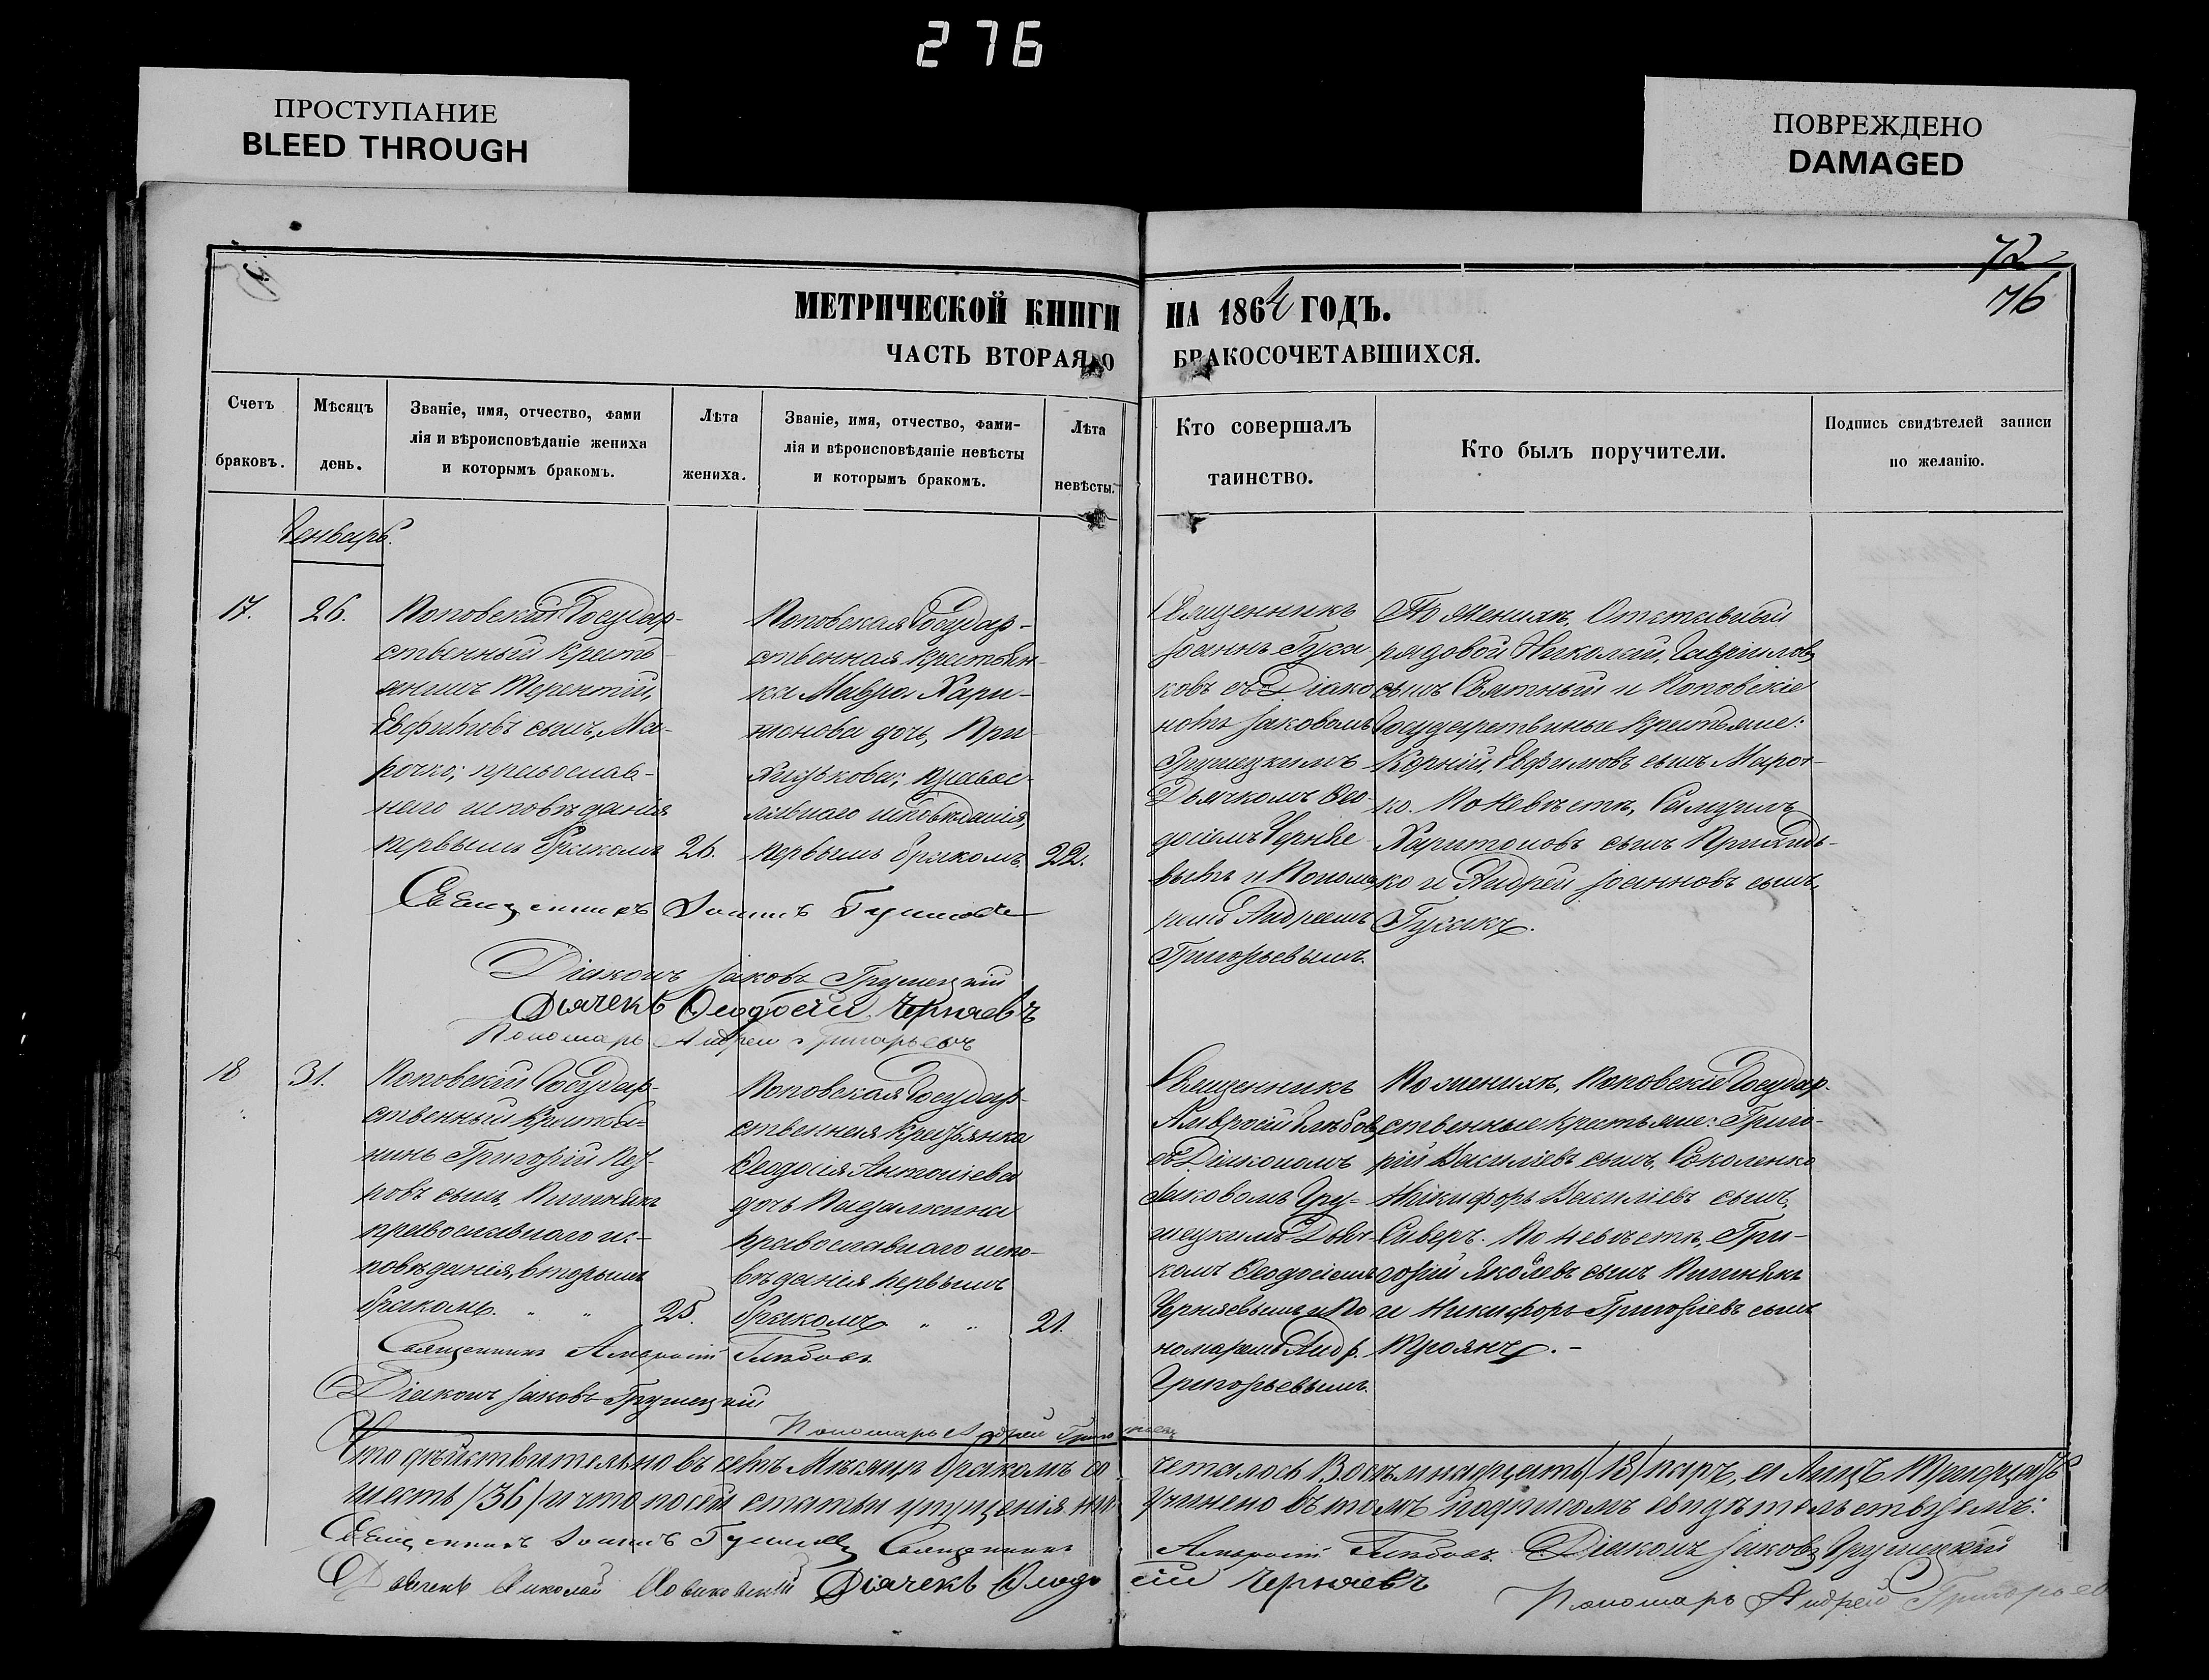 276
ПРОСТУПАНИЕ
BLEED THROUGH
ПОВРЕЖДЕНО
DAMAGED
72
76
МЕТРИЧЕСКОЙ КНИГИ НА 1864 ГОДЪ.
ЧАСТЬ ВТОРАЯ, О БРАКОСОЧЕТАВШИХСЯ.
Счетъ
браковъ.
Мѣсяцъ
день.
Званіе, имя, отчество, фами
лія и вѣроисповѣданіе жениха
и которымъ бракомъ.
Лѣта
жениха.
Званіе, имя, отчество, фами-
лія и вѣроисповѣданіе невѣсты
и которымъ бракомъ.
Лѣта
невѣсты.
Кто совершалъ
таинство.
Кто былъ поручители.
Подпись свидѣтелей записи
по желанію.
Генварь.
17.
26.
Поповскій Государ-
ственный Кресть-
янинъ Терентій,
Евфимовъ сынъ, Ма-
рочко; православ-
наго исповѣданія
первымъ бракомъ
26.
Поповская Государ-
ственная Крестьян-
ка Мавра Хари-
тонова дочь, При
православ-
наго исповѣданія,
первымъ бракомъ
22.
Священникъ
Іоаннъ Гуса
ковъ съ Діако
номъ Іаковомъ
Грушецкимъ
Дьячкомъ Ѳео-
досіемъ Черняе-
вымъ и Понома
ремъ Андреемъ
Григорьевымъ.
По женихѣ, Отставный
рядовой Николай, Гавриловъ
сынъ и Поповскіе
Государственные Крестьяне:
Корній, Евфимовъ сынъ Мароч-
ко. По Невѣстѣ,
Харитоновъ сынъ
ко и Андрей Іоанновъ сынъ,
Гусакъ.
Священникъ Іоаннъ
Діаконъ Іаковъ Грушецкій
Дьячекъ Ѳеодосій Черняевъ
Пономарь Андрей Григорьевъ
18
31.
Поповскій Государ-
ственный Крестья-
нинъ Григорій Пет-
ровъ сынъ,
православнаго ис-
повѣданія, вторымъ
бракомъ. " "
25.
Поповская Государ-
ственная Крестьянка
Ѳеодосія Антоніева
дочь
православнаго испо-
вѣданія первымъ
бракомъ " "
21.
Священникъ
Амвросій Глѣбовъ
съ Діакономъ
Іаковомъ Гру-
шецкимъ Дьяч-
комъ Ѳеодосіемъ
Черняевымъ и По
номаремъ Андр.
Григорьевымъ.
По женихѣ, Поповскіе Государ-
ственные Крестьяне: Григо-
рій Василіевъ сынъ, Соколенко
Никифоръ Василіевъ сынъ,
Сиверъ. По невѣстѣ, Гри-
горій Яковлевъ сынъ
и Никифоръ Григоріевъ сынъ
Троянъ. -
Священникъ Амвросій Глѣбовъ
Діаконъ Іаковъ Грушецкій
Пономарь Андрей Григорьевъ
Что дѣйствительно въ семъ Мѣсяцѣ бракомъ со четалось Восемнадцать /18/ паръ, а лицъ Тридцать
шесть /36/ и что по сей статьи упущенія не учинено въ томъ подписомъ свидѣтельствуемъ:
Священникъ Іоаннъ Священникъ Амвросій Глѣбовъ Діаконъ Іаковъ Грушецкій
Дьячекъ Николай Дьячекъ Ѳеодосій Черняевъ
Пономарь Андрей Григорьев